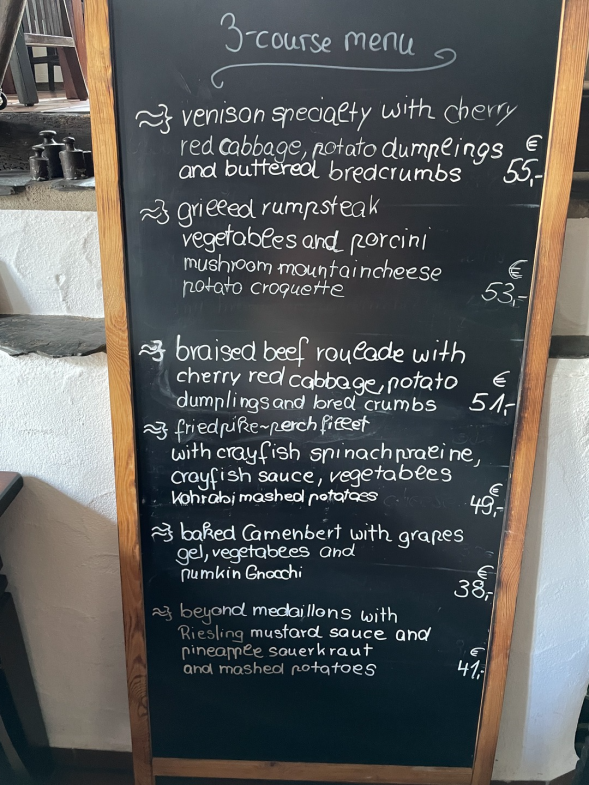 3-course menu
venison specialty with cherry
red cabbage, potato dumplings €
and buttered bredcrumbs 55,-
grilled rumpsteak
vegetables and porcini
mushroom mountaincheese €
potato croquette 53,-
braised beef roulade with
cherry red cabbage, potato €
dumplings and bred crumbs 51,-
fried pike-perch fillet
with crayfish spinach praline,
crayfish sauce, vegetables €
Kohrabi mashed potatoes 49,-
baked Camenbert with grapes
gel, vegetables and €
pumkin Gnocchi 38,-
beyond medaillons with
Riesling mustard sauce and
pineapple sauerkraut €
and mashed potatoes 41,-